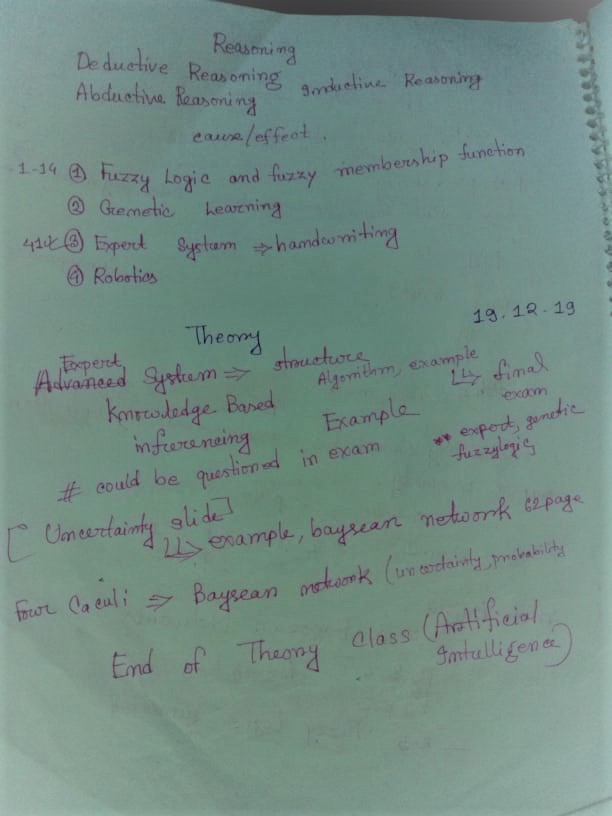 Reasoning
Deductive Reasoning
Abductive Reasoning Inductive Reasoning
cause/effect.
1-14 ① Fuzzy Logic and fuzzy membership function
② Gremetic Learning
③ Expert System ⇒ handwriting
④ Robotics
19.12.19
Theory
Expert
Advanced System ⇒ structure
Algorithm, example
↳ final exam
Knowledge Based
Example
inferencing
** expert, genetic
fuzzylogic
# could be questioned in exam
[Uncertainty slide]
↳ example, baysean network 62 page
Four Caculi ⇒ Baysean network (uncertainty, probability
End of Theory Class (Artificial
Intelligence)